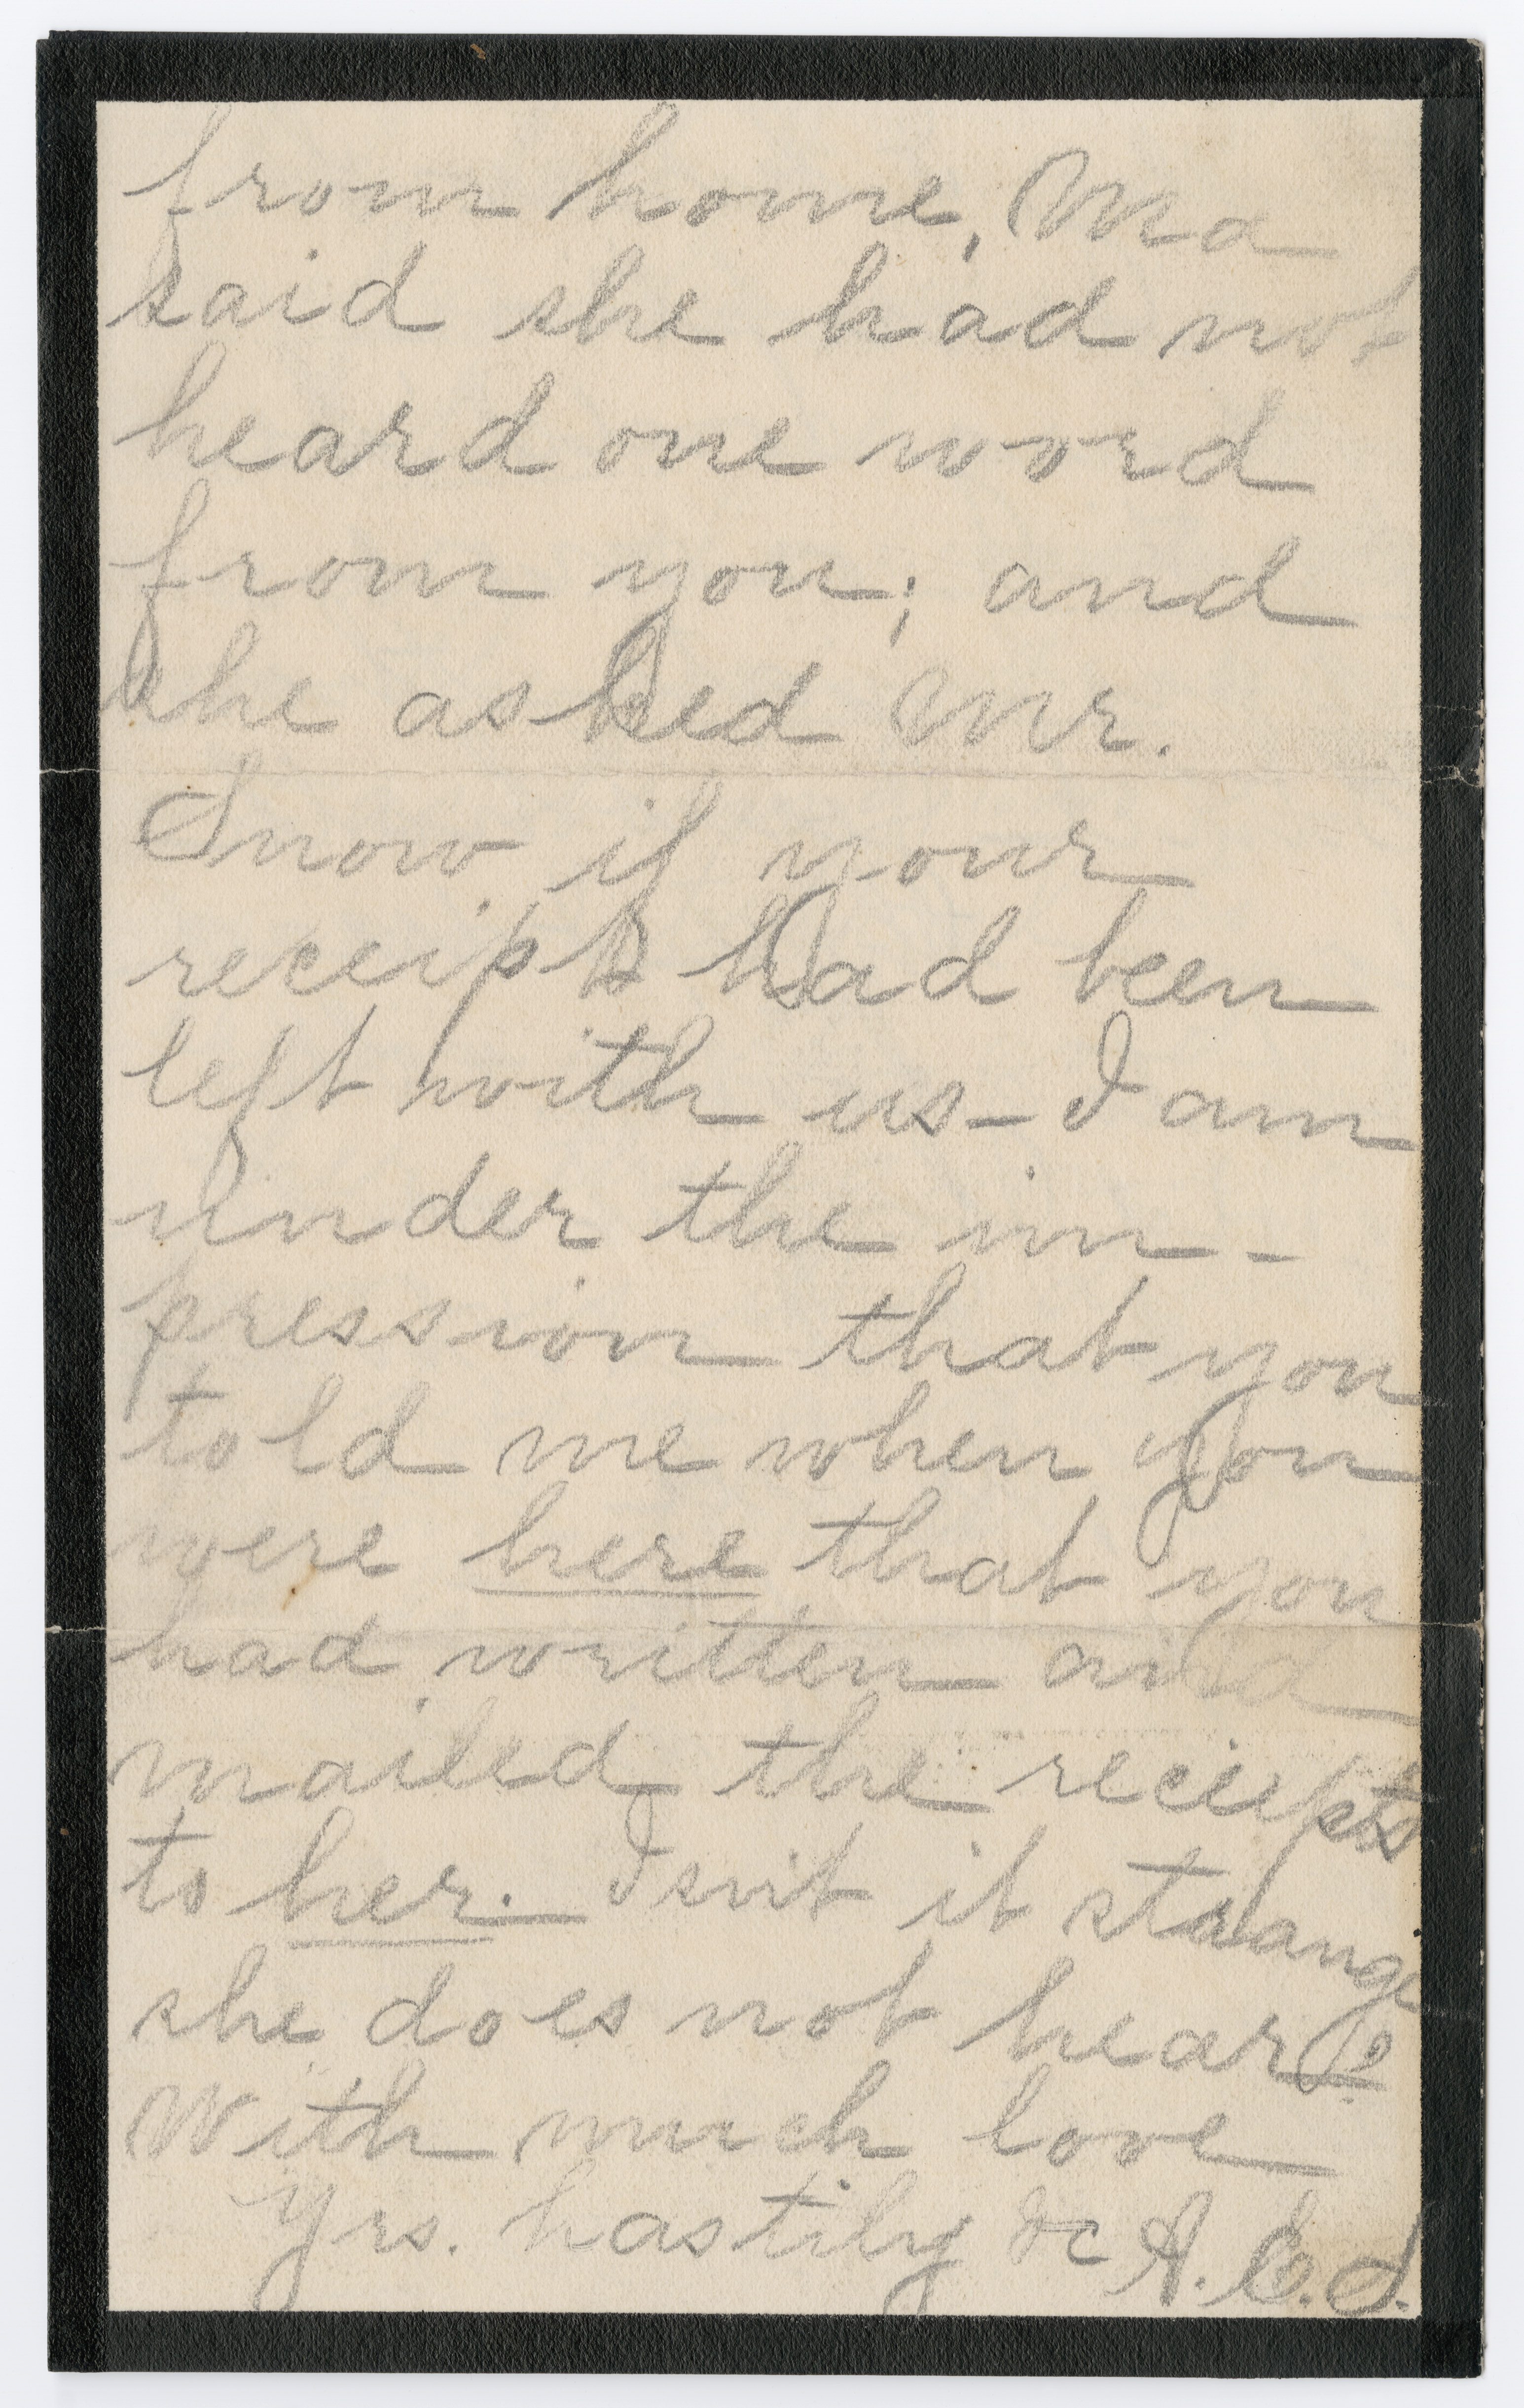 from home, Ma
said she had not
heard one word
from you; and
she asked Mr.
Snow if your
receipts had been
left with us – I am
under the im-
pression that you
told me when you
were here that you
had written and
mailed the receipts
to her. Isn't it strange
she does not hear?
With much love
Yrs. hastily &c A. E. S.